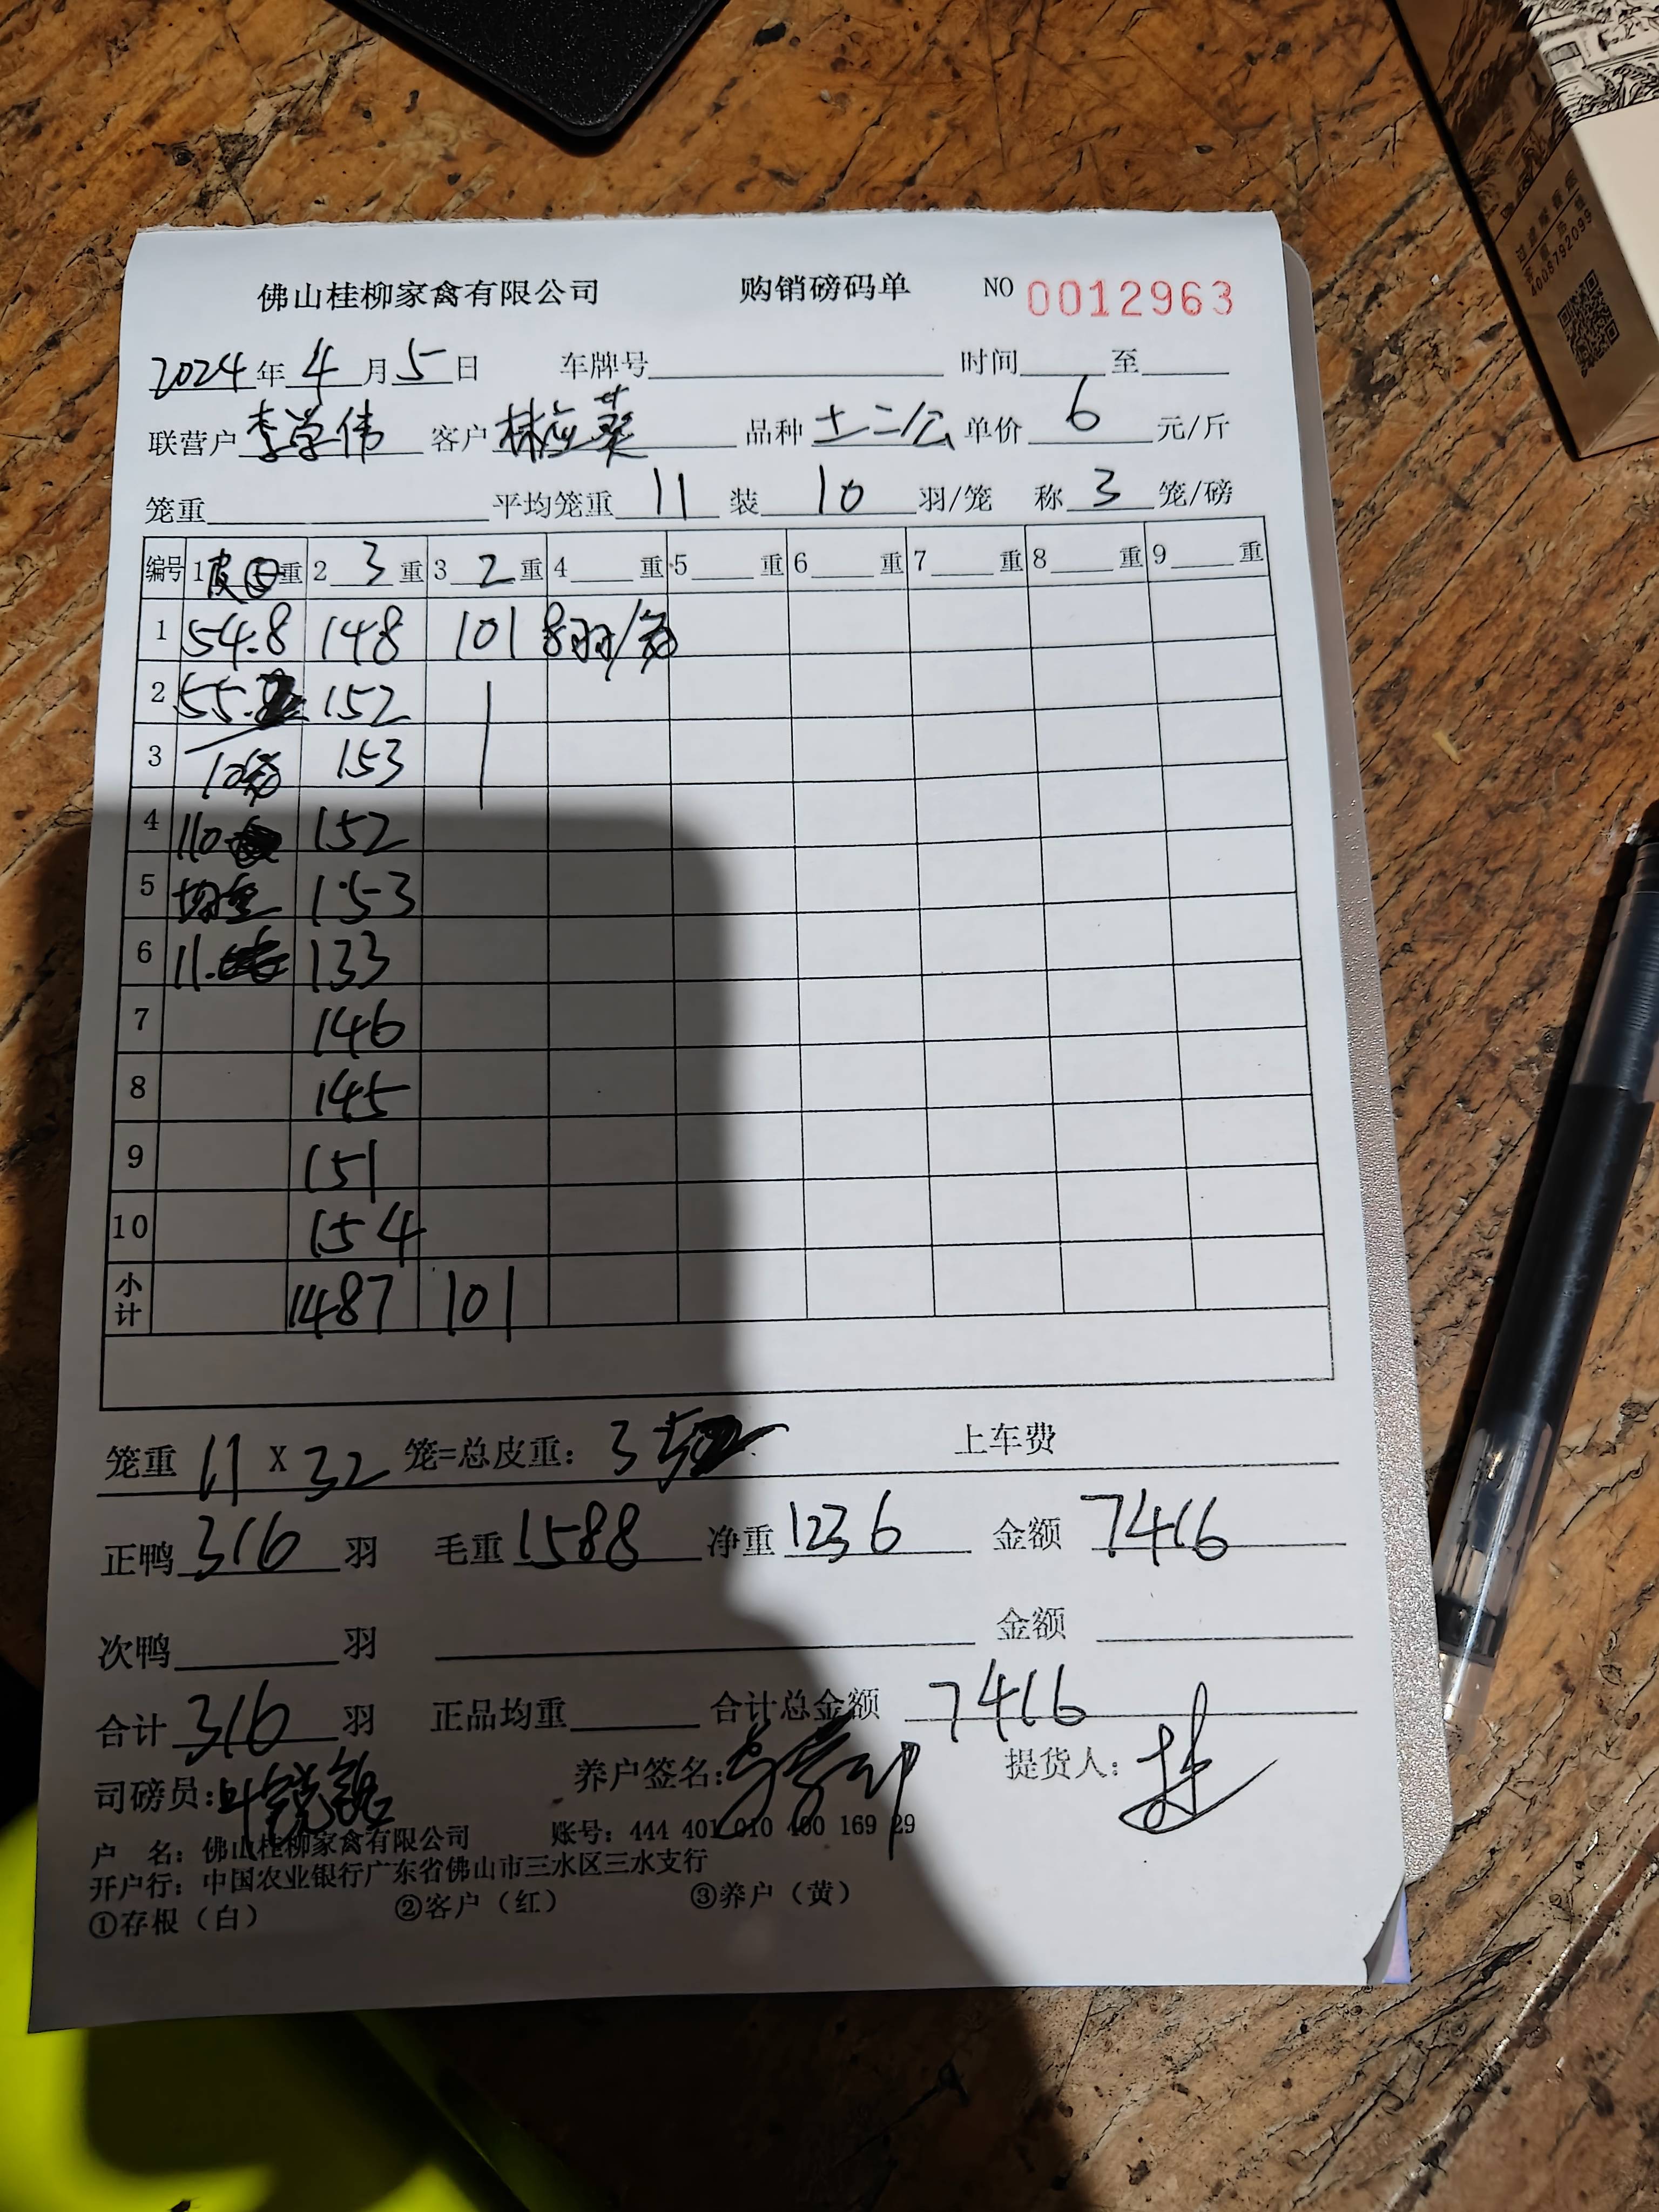 佛山桂柳家禽有限公司 购销磅码单 NO 0012963
2024年4月5日 车牌号 时间 至
联营户 李学伟 客户 林应葵 品种 土二公 单价 6 元/斤
笼重 平均笼重 11 装 10 羽/笼 称 3 笼/磅
编号 1 皮⑤重 2 3 重 3 2 重 4 重 5 重 6 重 7 重 8 重 9 重
1 54.8 148 101 8羽/笼
2 55. 152
3 10笼 153
4 110 152
5 均重 153
6 11. 133
7 146
8 145
9 151
10 154
小计 1487 101
笼重 11 X 32 笼=总皮重: 352 上车费
正鸭 316 羽 毛重 1588 净重 1236 金额 7416
次鸭 羽 金额
合计 316 羽 正品均重 合计总金额 7416
司磅员: 养户签名: 提货人:
户 名: 佛山桂柳家禽有限公司 账号: 444 401 010 400 169 29
开户行: 中国农业银行广东省佛山市三水区三水支行
①存根（白） ②客户（红） ③养户（黄）
4008792099